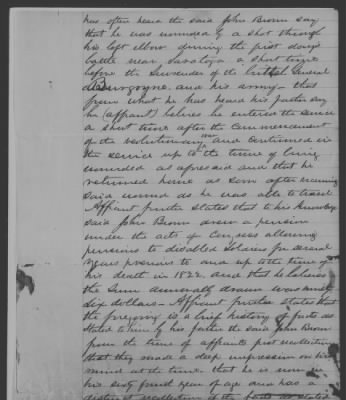 has often heard the said John Brown say
that he was wounded by a shot through
his left elbow during the first days
battle near Saratoga a short time
before the surrender of the british General
Burgoyne, and his army – that
from what he has heard his father say
he (affiant) believes he entered the service
a short time after the commencement
of the revolutionary war and continued in
the service up to the time of being
wounded as aforesaid and that he
returned home as soon after receiving
said wound as he was able to travel
Affiant further states that to his knowledge
said John Brown drew a pension
under the acts of Congress allowing
pensions to disabled Soldiers for several
years previous to and up to the time of
his death in 1822, and that he believes
the Sum annually drawn was ninety
six dollars – Affiant further states that
the foregoing is a brief history of facts as
stated to him by his father the said John Brown
from the time of affiants first recollection
that they made a deep impression on his
mind at the time that he is now in
his sixty year of age and has a
distinct recollection of the facts as stated